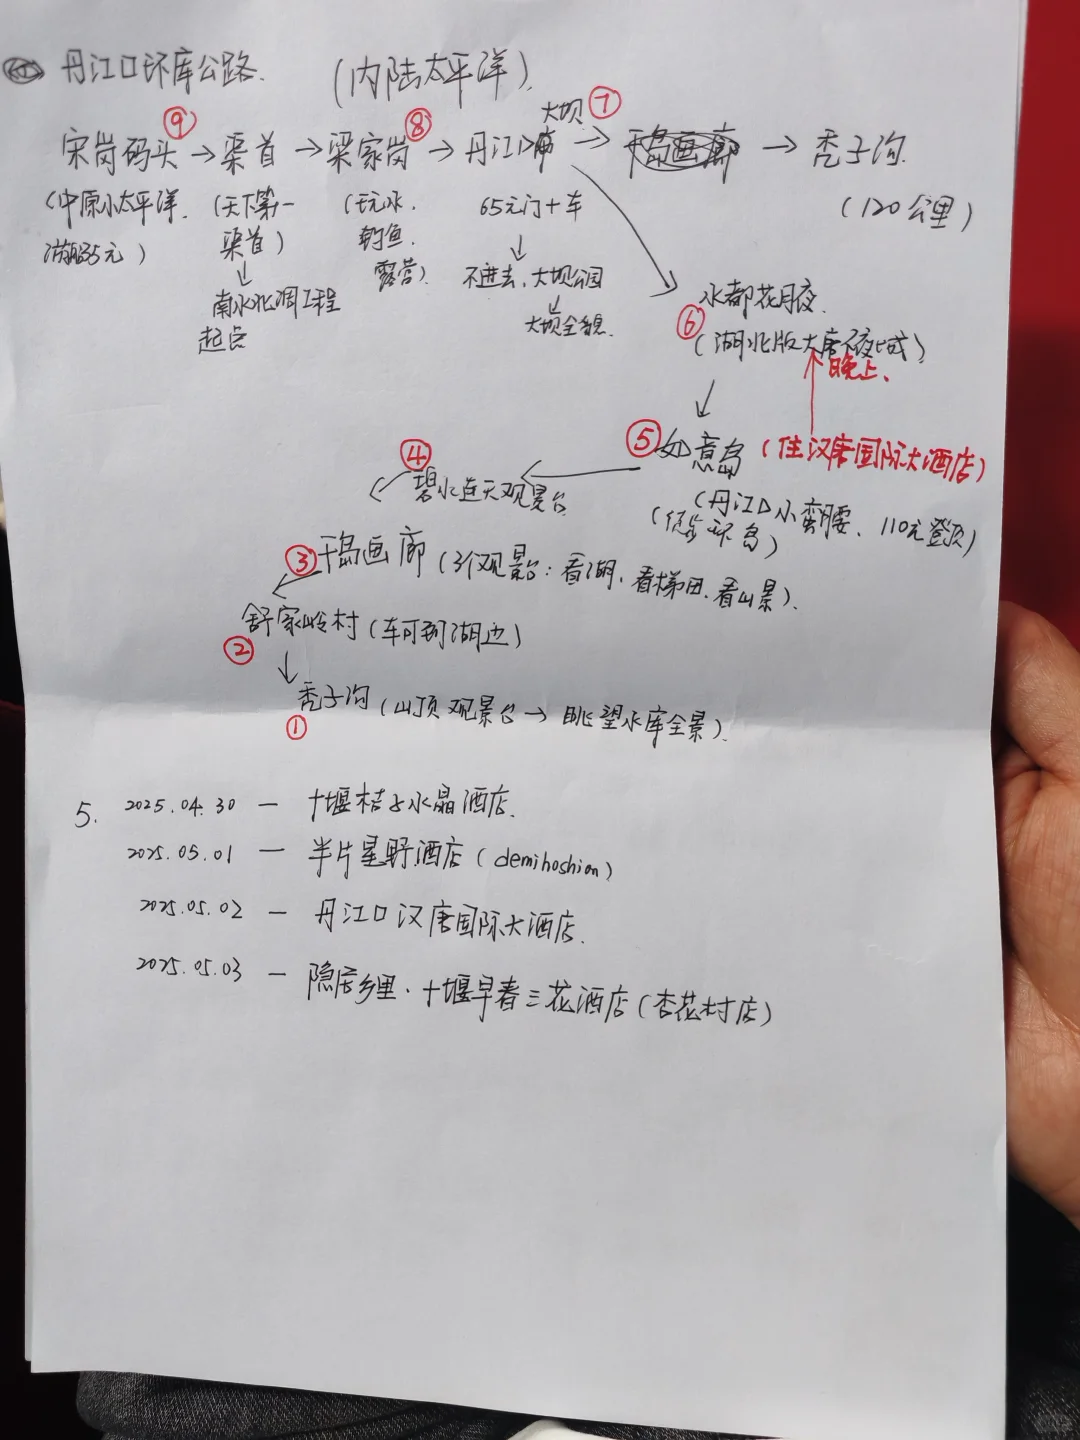 丹江口环库公路. (内陆太平洋).
宋岗码头 ⑨ → 渠首 → 梁家岗 ⑧ → 丹江口 大坝 ⑦ → → 秃子沟.
(中原小太平洋. (天下第一 (玩水. 65元门+车 (120公里)
35元) 渠首) 钓鱼. ↓
↓ 露营) 不进去, 大坝公园
南水北调工程 ↓
起点 大坝全貌.
水都花月夜.
⑥ (湖北版大唐不夜城)
晚上.
↓
⑤ 如意岛 (住汉唐国际大酒店)
(丹江口小蛮腰. 110元登顶)
(徒步环岛)
④ 碧水连天观景台
③ 千岛画廊 (3个观景台: 看湖, 看梯田, 看山景).
舒家岭村 (车可到湖边)
②
↓
秃子沟 (山顶观景台 → 眺望水库全景).
①
5. 2025.04.30 — 十堰桔子水晶酒店.
2025.05.01 — 半片星野酒店 (demihoshion)
2025.05.02 — 丹江口汉唐国际大酒店.
2025.05.03 — 隐居乡里·十堰早春三花酒店 (杏花村店)